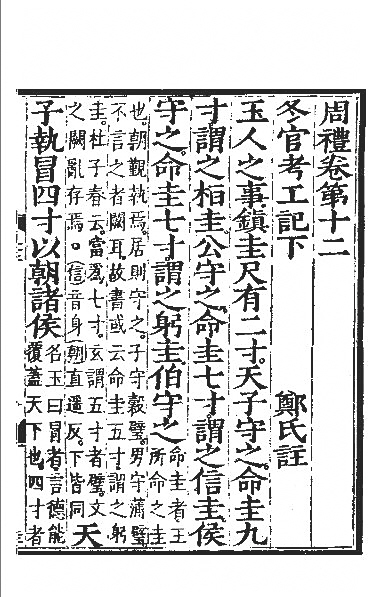 周禮卷第十二
冬官考工記下 鄭氏註
玉人之事鎮圭尺有二寸。天子守之。命圭九
寸。謂之桓圭。公守之。命圭七寸。謂之信圭。侯
守之。命圭七寸。謂之躬圭。伯守之
命圭者王
所命之圭
也。朝覲執焉。居則守之。子守穀璧。男守蒲璧
不言之者闕耳。故書或云命圭五寸。謂之躬
圭。杜子春云。當爲七寸。玄謂五寸者。璧文
之闕亂存焉。信音身朝直遥反。下皆同
天
子執冒四寸以朝諸侯
名玉曰冒者。言德能
覆蓋天下也。四寸者